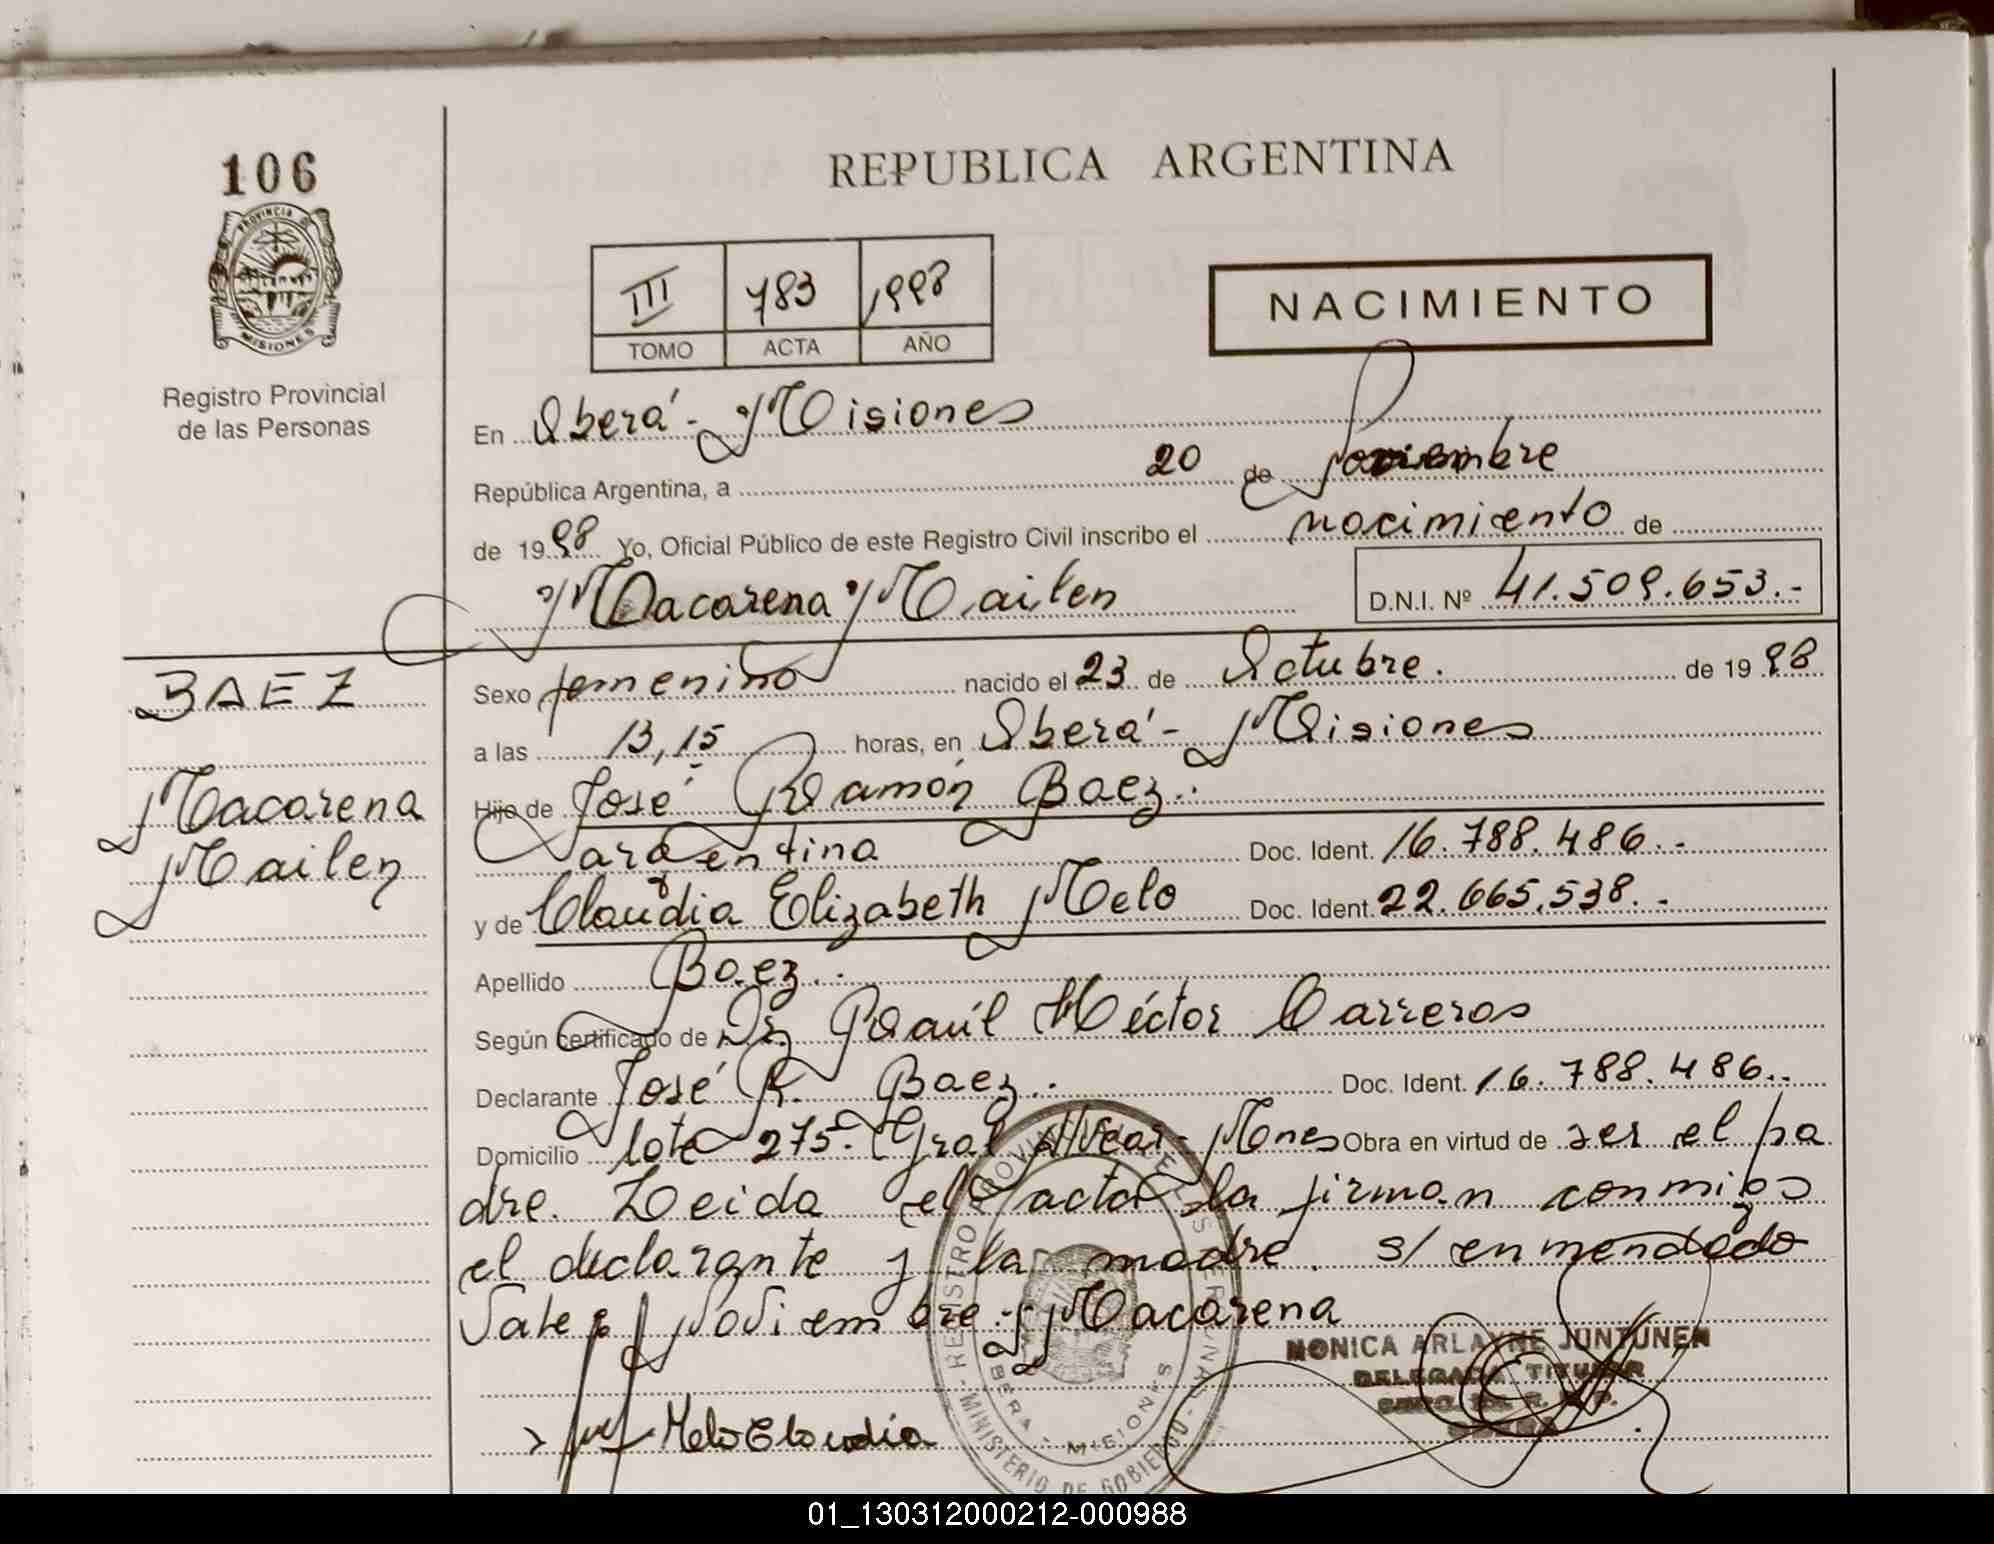 106
PROVINCIA DE
MISIONES
Registro Provincial
de las Personas
REPUBLICA ARGENTINA
III 783 1998
TOMO ACTA AÑO
NACIMIENTO
En Oberá - Misiones
República Argentina, a 20 de Noviembre
de 1998 Yo, Oficial Público de este Registro Civil inscribo el nacimiento de
Macarena Mailen D.N.I. Nº 41.509.653.-
BAEZ
Macarena
Mailen
Sexo femenino nacido el 23 de Octubre. de 1998
a las 13,15 horas, en Oberá - Misiones
Hijo de José Ramón Baez.
argentina Doc. Ident. 16.788.486.-
y de Claudia Elizabeth Melo Doc. Ident. 22.665.538.-
Apellido Baez.
Según certificado de Dr. Raúl Héctor Carreros
Declarante José R. Baez. Doc. Ident. 16.788.486.
Domicilio lote 275- Gral Alvear- Mones Obra en virtud de ser el pa
dre. Leida el acta la firman conmigo
el declarante y la madre. s/ enmendado
Vale: Noviembre - Macarena
MONICA ARLAYNE JUNTUNEN
DELEGADA TITULAR
Melo Claudia
OBERA - MISIONES
MINISTERIO DE GOBIERNO
01_130312000212-000988